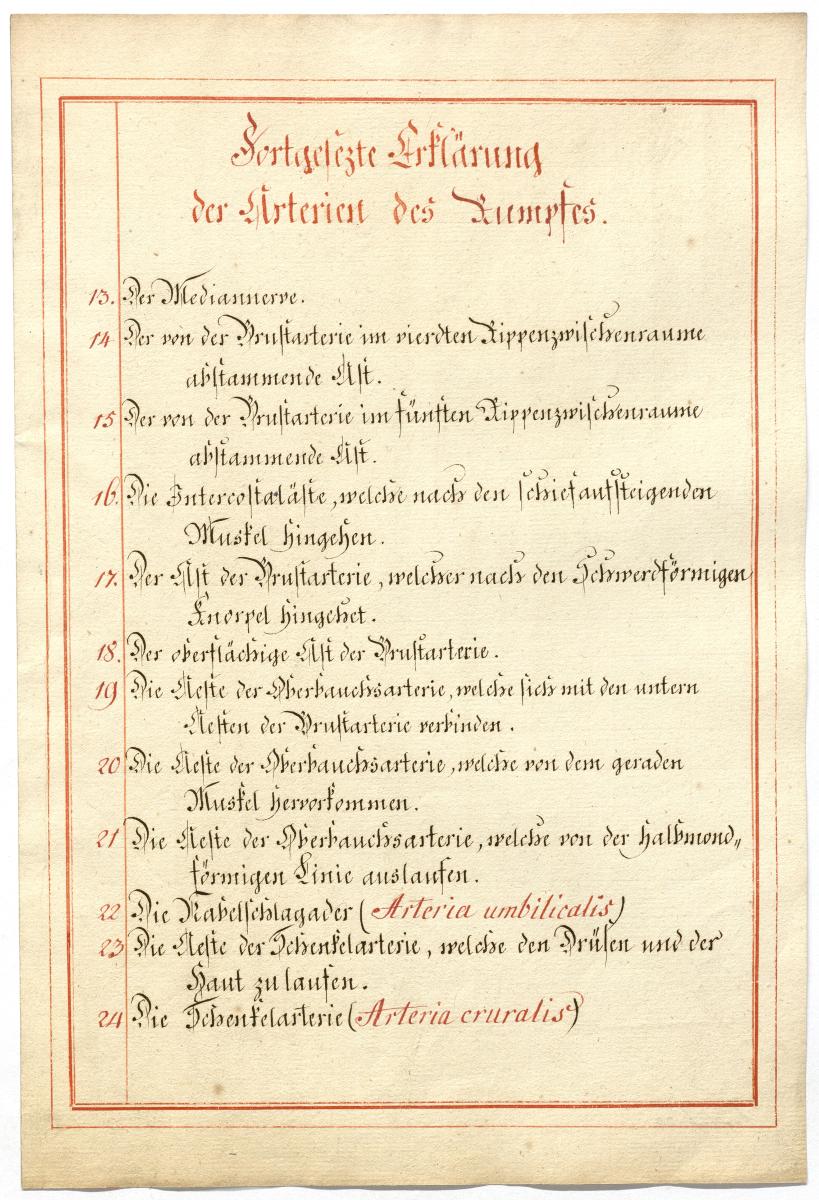 Fortgesezte Erklärung
der Arterien des Rumpfes.
13. Der Mediannerve.
14 Der von der Brustarterie im vierdten Rippenzwischenraume
abstammende Ast.
15 Der von der Brustarterie im fünften Rippenzwischenraume
abstammende Ast.
16. Die Intercostaläste, welche nach den schiefaufsteigenden
Muskel hingehen.
17. Der Ast der Brustarterie, welcher nach den Schwerdförmigen
Knorpel hingehet.
18. Der oberflächige Ast der Brustarterie.
19 Die Aeste der Oberbauchsarterie, welche sich mit den untern
Aesten der Brustarterie verbinden.
20 Die Aeste der Oberbauchsarterie, welche von dem geraden
Muskel hervorkommen.
21 Die Aeste der Oberbauchsarterie, welche von der halbmond„
förmigen Linie auslaufen.
22 Die Nabelschlagader (Arteria umbilicalis)
23 Die Aeste der Schenkelarterie, welche den Drüsen und der
Haut zu laufen.
24 Die Schenkelarterie (Arteria cruralis)